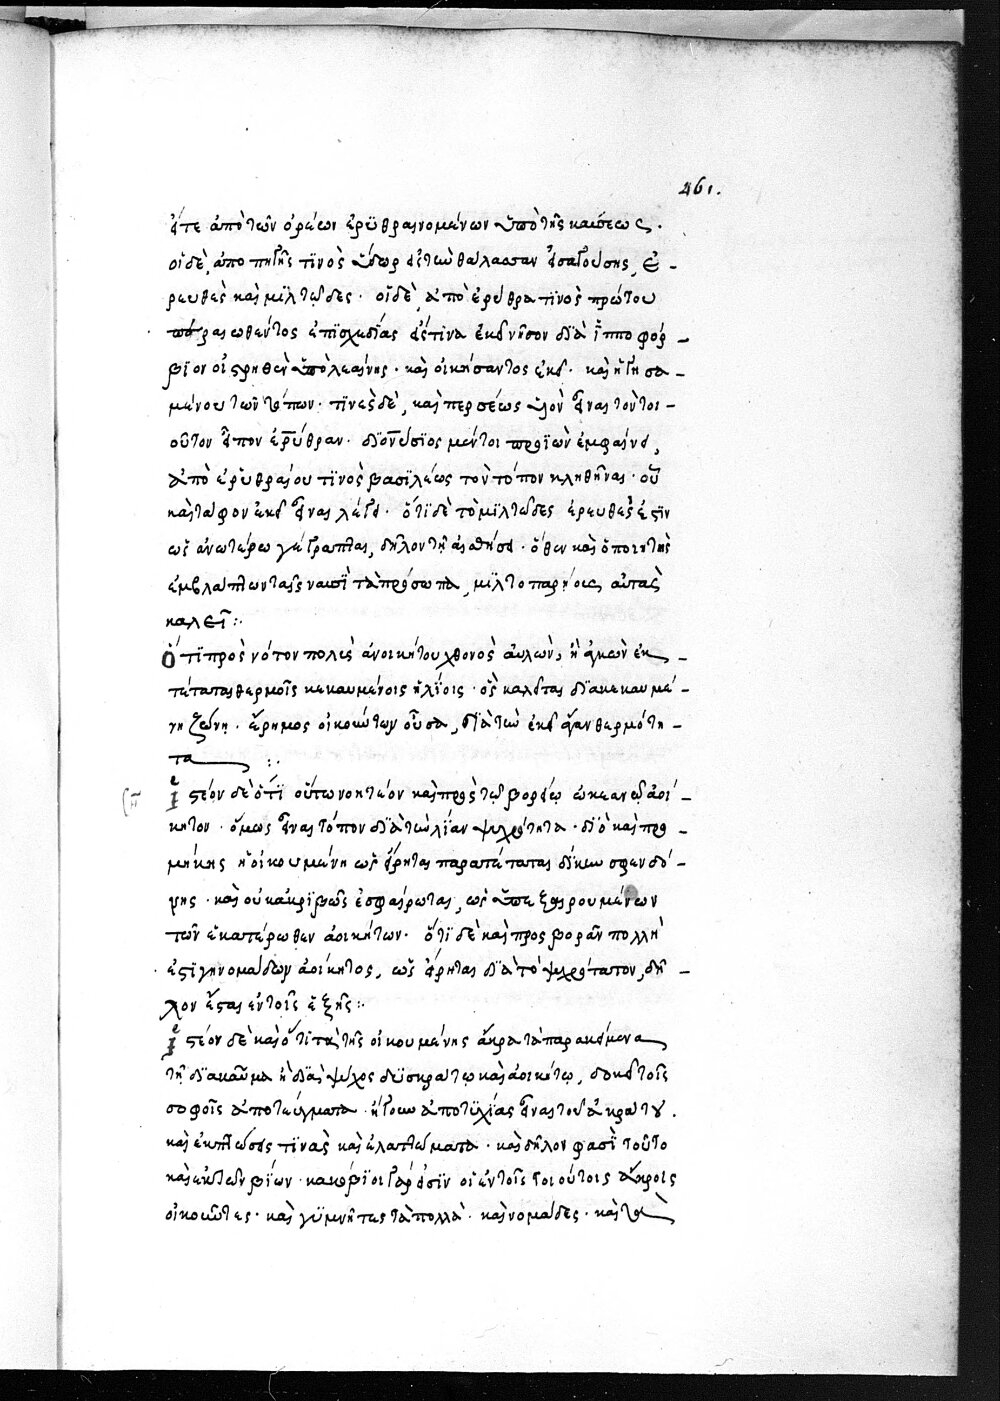 461.
εἴτε ἀπὸ τῶν ὀρέων ἐρυθραινομένων ὑπὸ τῆς καύσεως.
οἱ δὲ, ἀπο πηγῆς τινὸς ὕδωρ εἰς τὴν θάλασσαν εἰσαγούσης, ἐ-
ρευθὲς καὶ μιλτῶδες. οἱ δὲ ἀπὸ ἐρύθρα τινὸς πρώτου
περαιωθέντος ἐπὶ σχεδίας εἴς τινα ἐκεῖ νῆσον διὰ ἱπποφόρ-
βιον
καὶ οἰκήσαντος ἐκεῖ. καὶ ἡγησα-
μένου τῶν τόπων. τινὲς δὲ, καὶ περσέως υἱὸν εἶναι τὸν τοι-
οῦτον εἶπον ἐρύθραν. διονύσιος μέντοι προϊὼν ἐμφαίνει,
ἀπὸ ἐρυθραίου τινὸς βασιλέως τὸν τόπον κληθῆναι. οὗ
καὶ τάφον ἐκεῖ εἶναι λέγει. ὅτι δὲ τὸ μιλτῶδες ἐρευθές ἐστιν
ὡς ἀνωτέρω γέγραπται, δῆλον τῇ αἰσθήσει. ὅθεν καὶ ὁ ποιητὴς
ἐμβλάπτων ταῖς ναυσὶ τὰ πρόσωπα, μιλτοπαρήους αὐτὰς
καλεῖ:
Ὅτι πρὸς νότον πολὺς ἀνοικήτου χθονὸς αὐλὼν, ἢ ἀγκὼν ἐκ-
τέταται θερμοῖς κεκαυμένοις ἡλίοις. ὃς καλεῖται διακεκαυμέ-
νη ζώνη. ἔρημος οἰκούντων οὖσα, διὰ τὴν ἐκεῖ ἄγαν θερμότη-
τα :
Ἰστέον δὲ ὅτι οὕτω νοητέον καὶ πρὸς τῷ βορείῳ ὠκεανῷ ἀοί-
κητον. ὅμως εἶναι τόπον διὰ τὴν λίαν ψυχρότητα. διὸ καὶ προ-
μήκης ἡ οἰκουμένη ὡς εἴρηται παρατέταται δίκην σφενδό-
νης. καὶ οὐκ ἀκριβῶς ἐσφαίρωται, ὡς ὑπεξαιρουμένων
τῶν ἑκατέρωθεν ἀοικήτων. ὅτι δὲ καὶ πρὸς βορᾶν πολλή
ἐστι γῆ νομάδων ἀοίκητος, ὡς εἴρηται διὰ τὸ ψυχρότατον, δῆ-
λον ἔσται ἐν τοῖς ἑξῆς:
Ἰστέον δὲ καὶ ὅτι τὰ τῆς οἰκουμένης ἄκρα τὰ παρακείμενα
τῇ διακαῦμα ἢ διὰ ψύχος δυσκράτῳ καὶ ἀοικήτῳ, δοκεῖ τοῖς
σοφοῖς ἀποτεύγματα ἤγουν ἀποτυχίας εἶναι τοῦ εὐκράτου.
καὶ ἐκπτώσεις τινὰς καὶ ἐλαττώματα. καὶ δῆλον φασὶ τοῦτο
καὶ ἐκ τῶν βίων. κακόβιοι γάρ εἰσιν οἱ ἐν τοῖς τοιούτοις ἄκροις
οἰκοῦντες. καὶ γυμνῆτες τὰ πολλὰ. καὶ νομάδες. καὶ τὰ